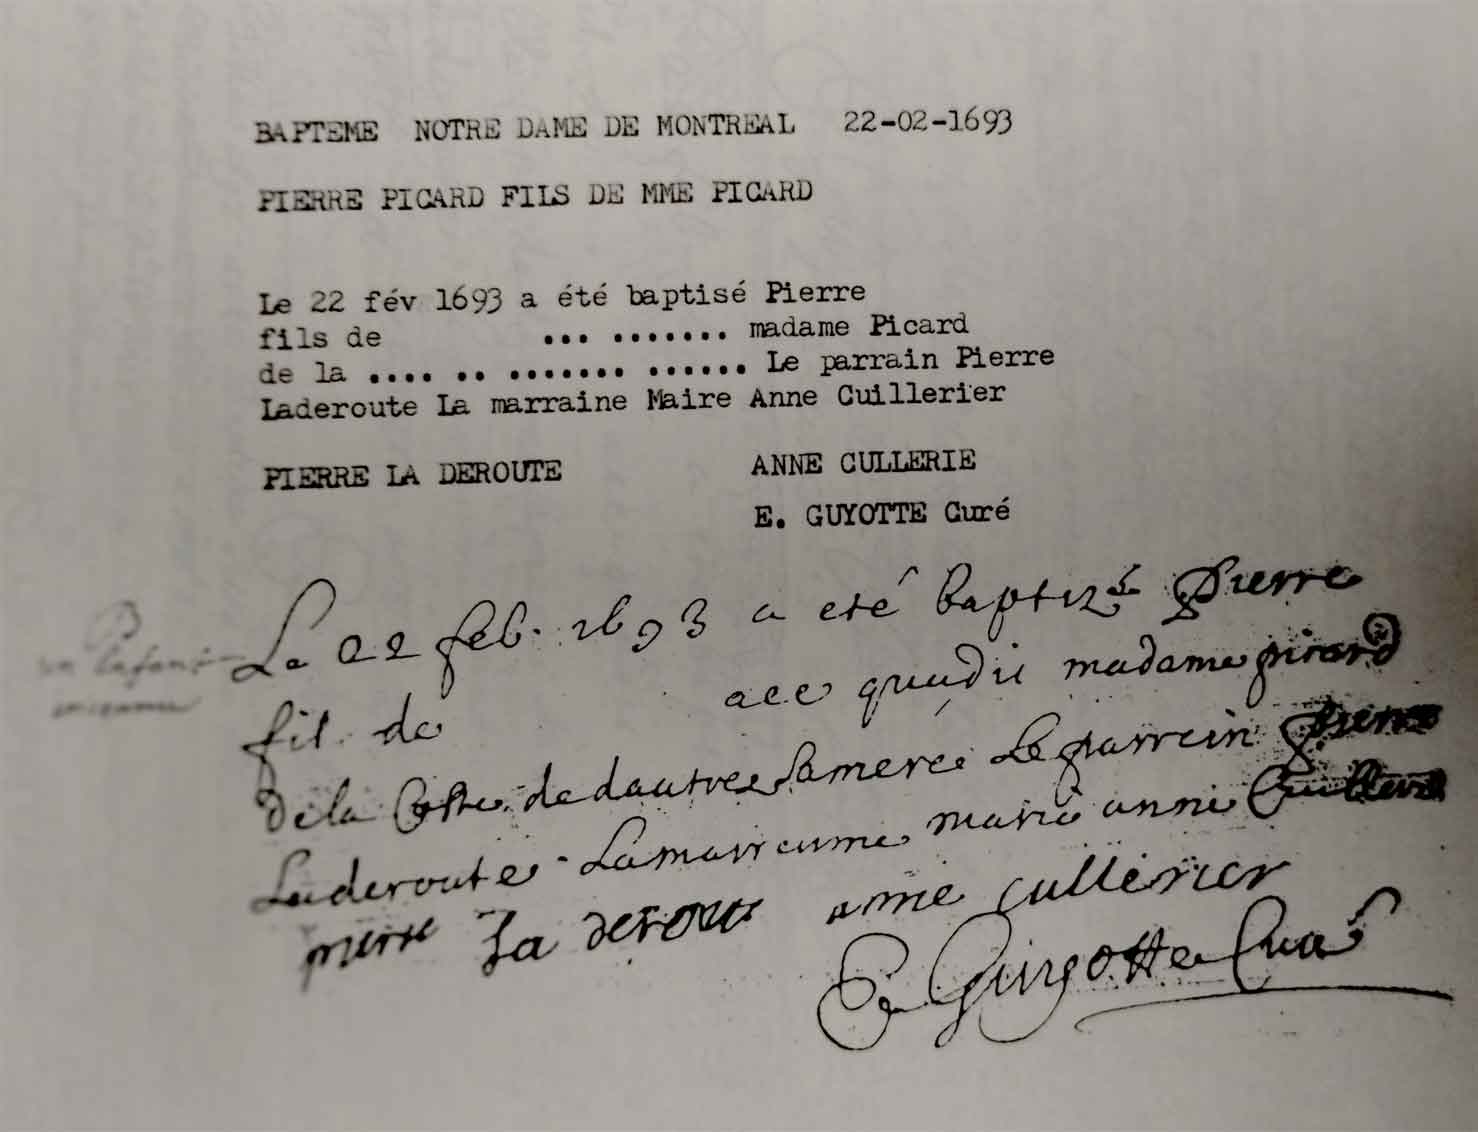 BAPTEME NOTRE DAME DE MONTREAL 22-02-1693
PIERRE PICARD FILS DE MME PICARD
Le 22 fév 1693 a été baptisé Pierre
fils de ... ....... madame Picard
de la .... .. ....... ...... Le parrain Pierre
Laderoute La marraine Maire Anne Cuillerier
PIERRE LA DEROUTE ANNE CULLERIE
E. GUYOTTE Curé
Le 22 feb. 1693 a eté baptizé Pierre
fil de madame picard
de la Coste de Le parrein pierre
Laderoute marie anne
pierre La deroute anne cullerier
Guyotte Curé